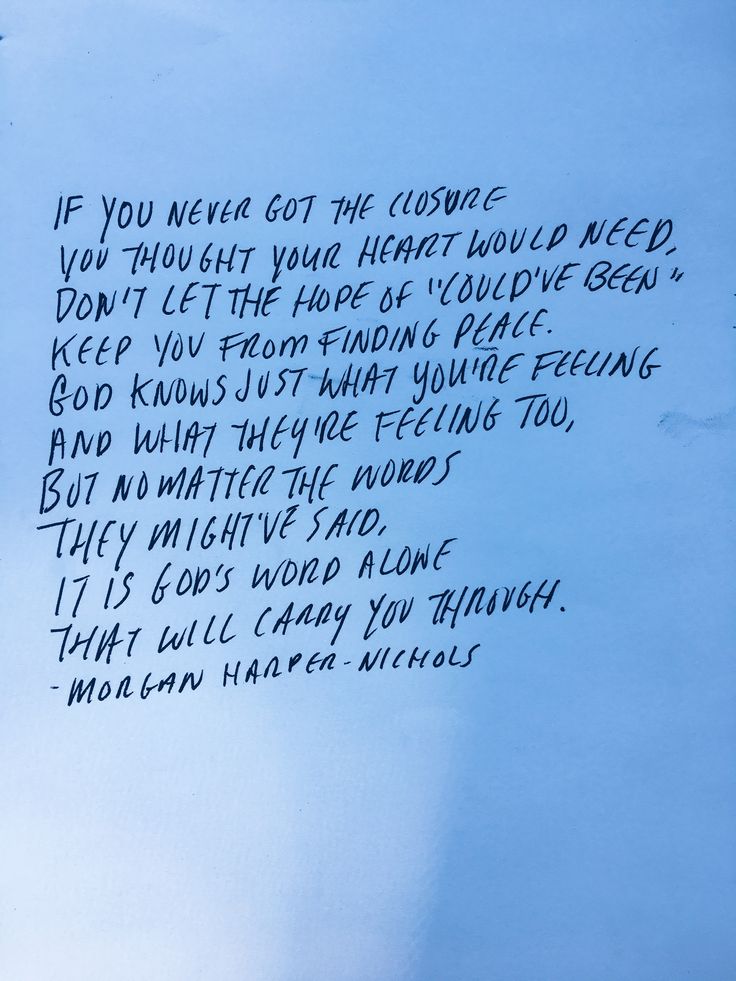 IF YOU NEVER GOT THE CLOSURE
YOU THOUGHT YOUR HEART WOULD NEED,
DON'T LET THE HOPE OF "COULD'VE BEEN"
KEEP YOU FROM FINDING PEACE.
GOD KNOWS JUST WHAT YOU'RE FEELING
AND WHAT THEY'RE FEELING TOO,
BUT NO MATTER THE WORDS
THEY MIGHT'VE SAID,
IT IS GOD'S WORD ALONE
THAT WILL CARRY YOU THROUGH.
-MORGAN HARPER-NICHOLS